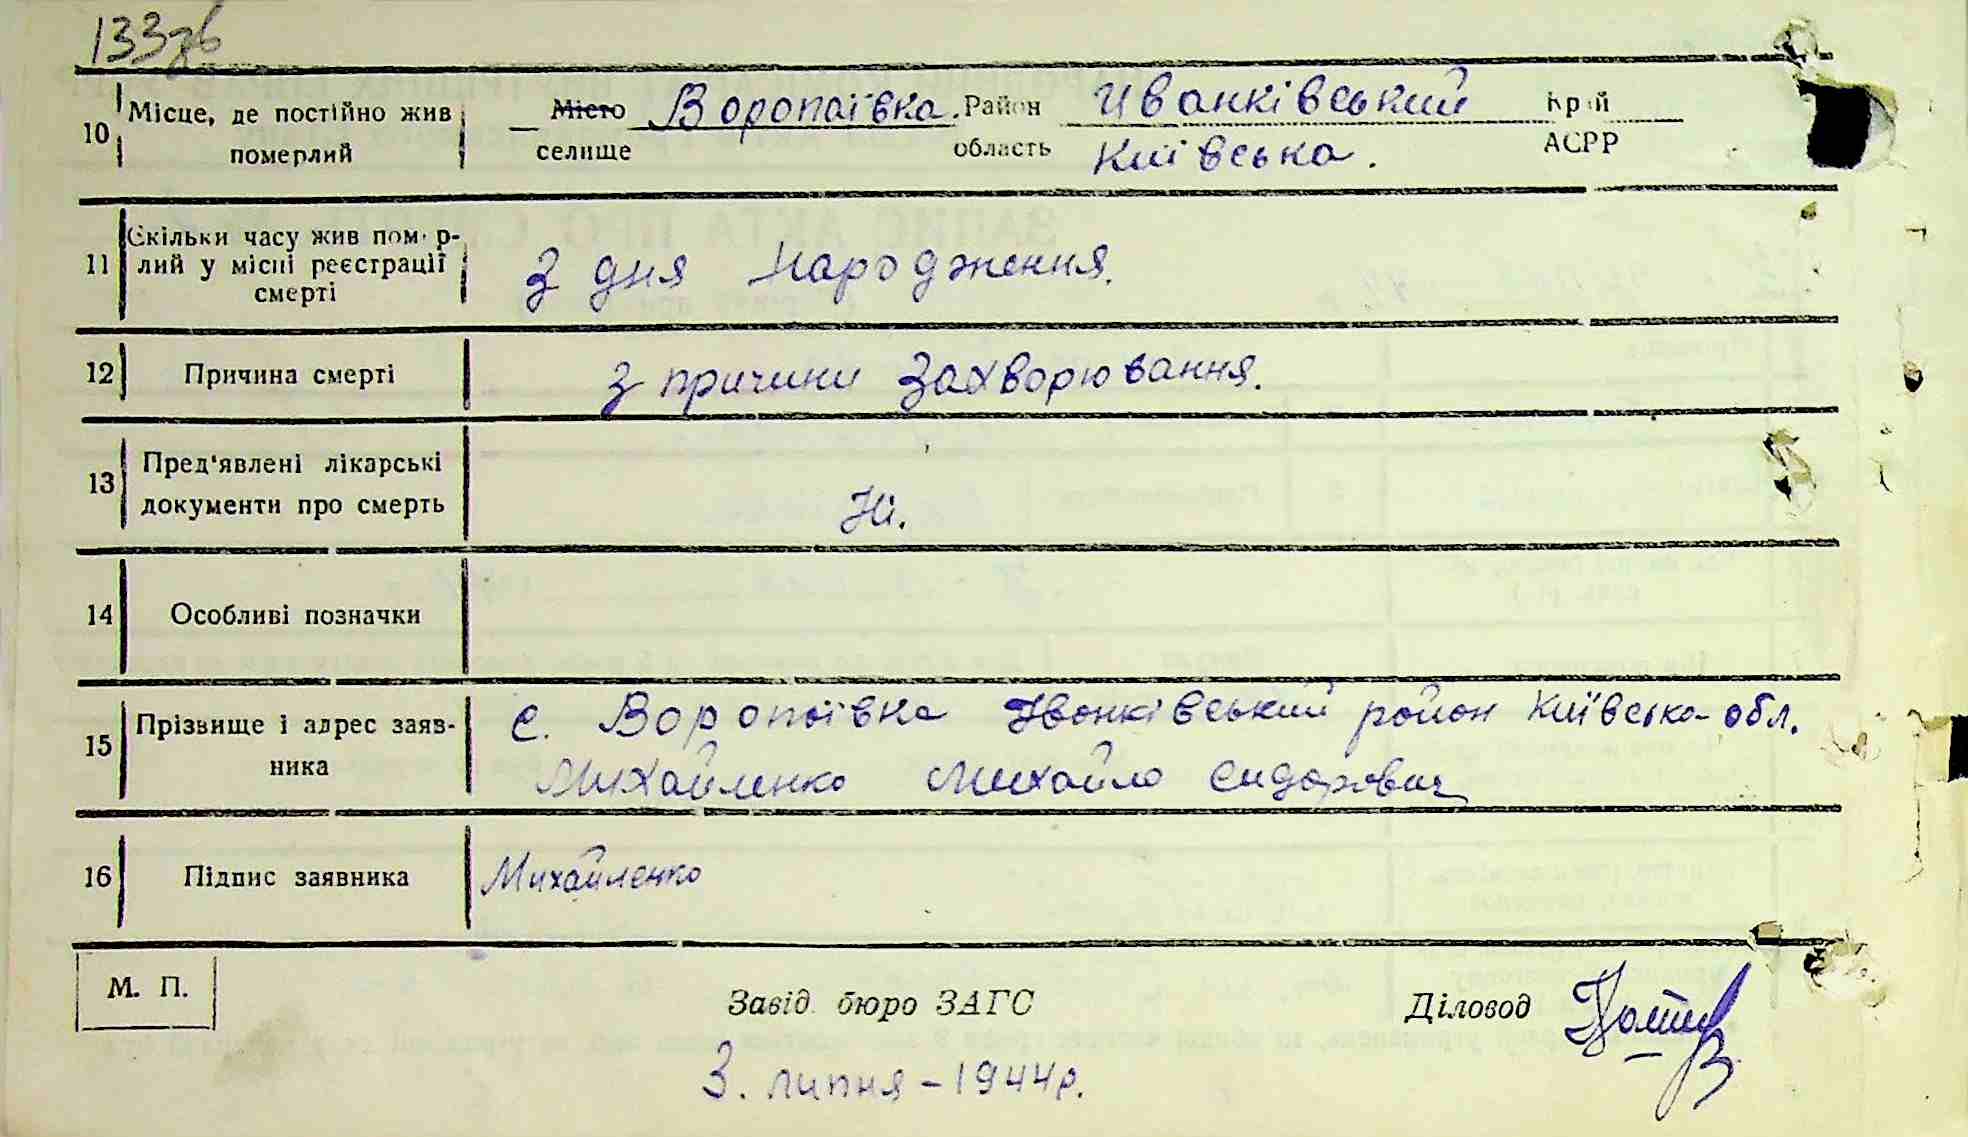 133зв
10 Місце, де постійно жив померлий Місто селище Воропаївка. Район Иванківський Край
область Київська. АСРР
11 Скільки часу жив померлий у місці реєстрації смерті З дня народження.
12 Причина смерті З причини Захворювання.
13 Пред'явлені лікарські документи про смерть Ні.
14 Особливі позначки
15 Прізвище і адрес заявника с. Воропаївка Іванківський район Київська обл.
Михайленко Михайло Сидорович
16 Підпис заявника Михайленко
М. П.
Завід. бюро ЗАГС Діловод
3. липня - 1944р.